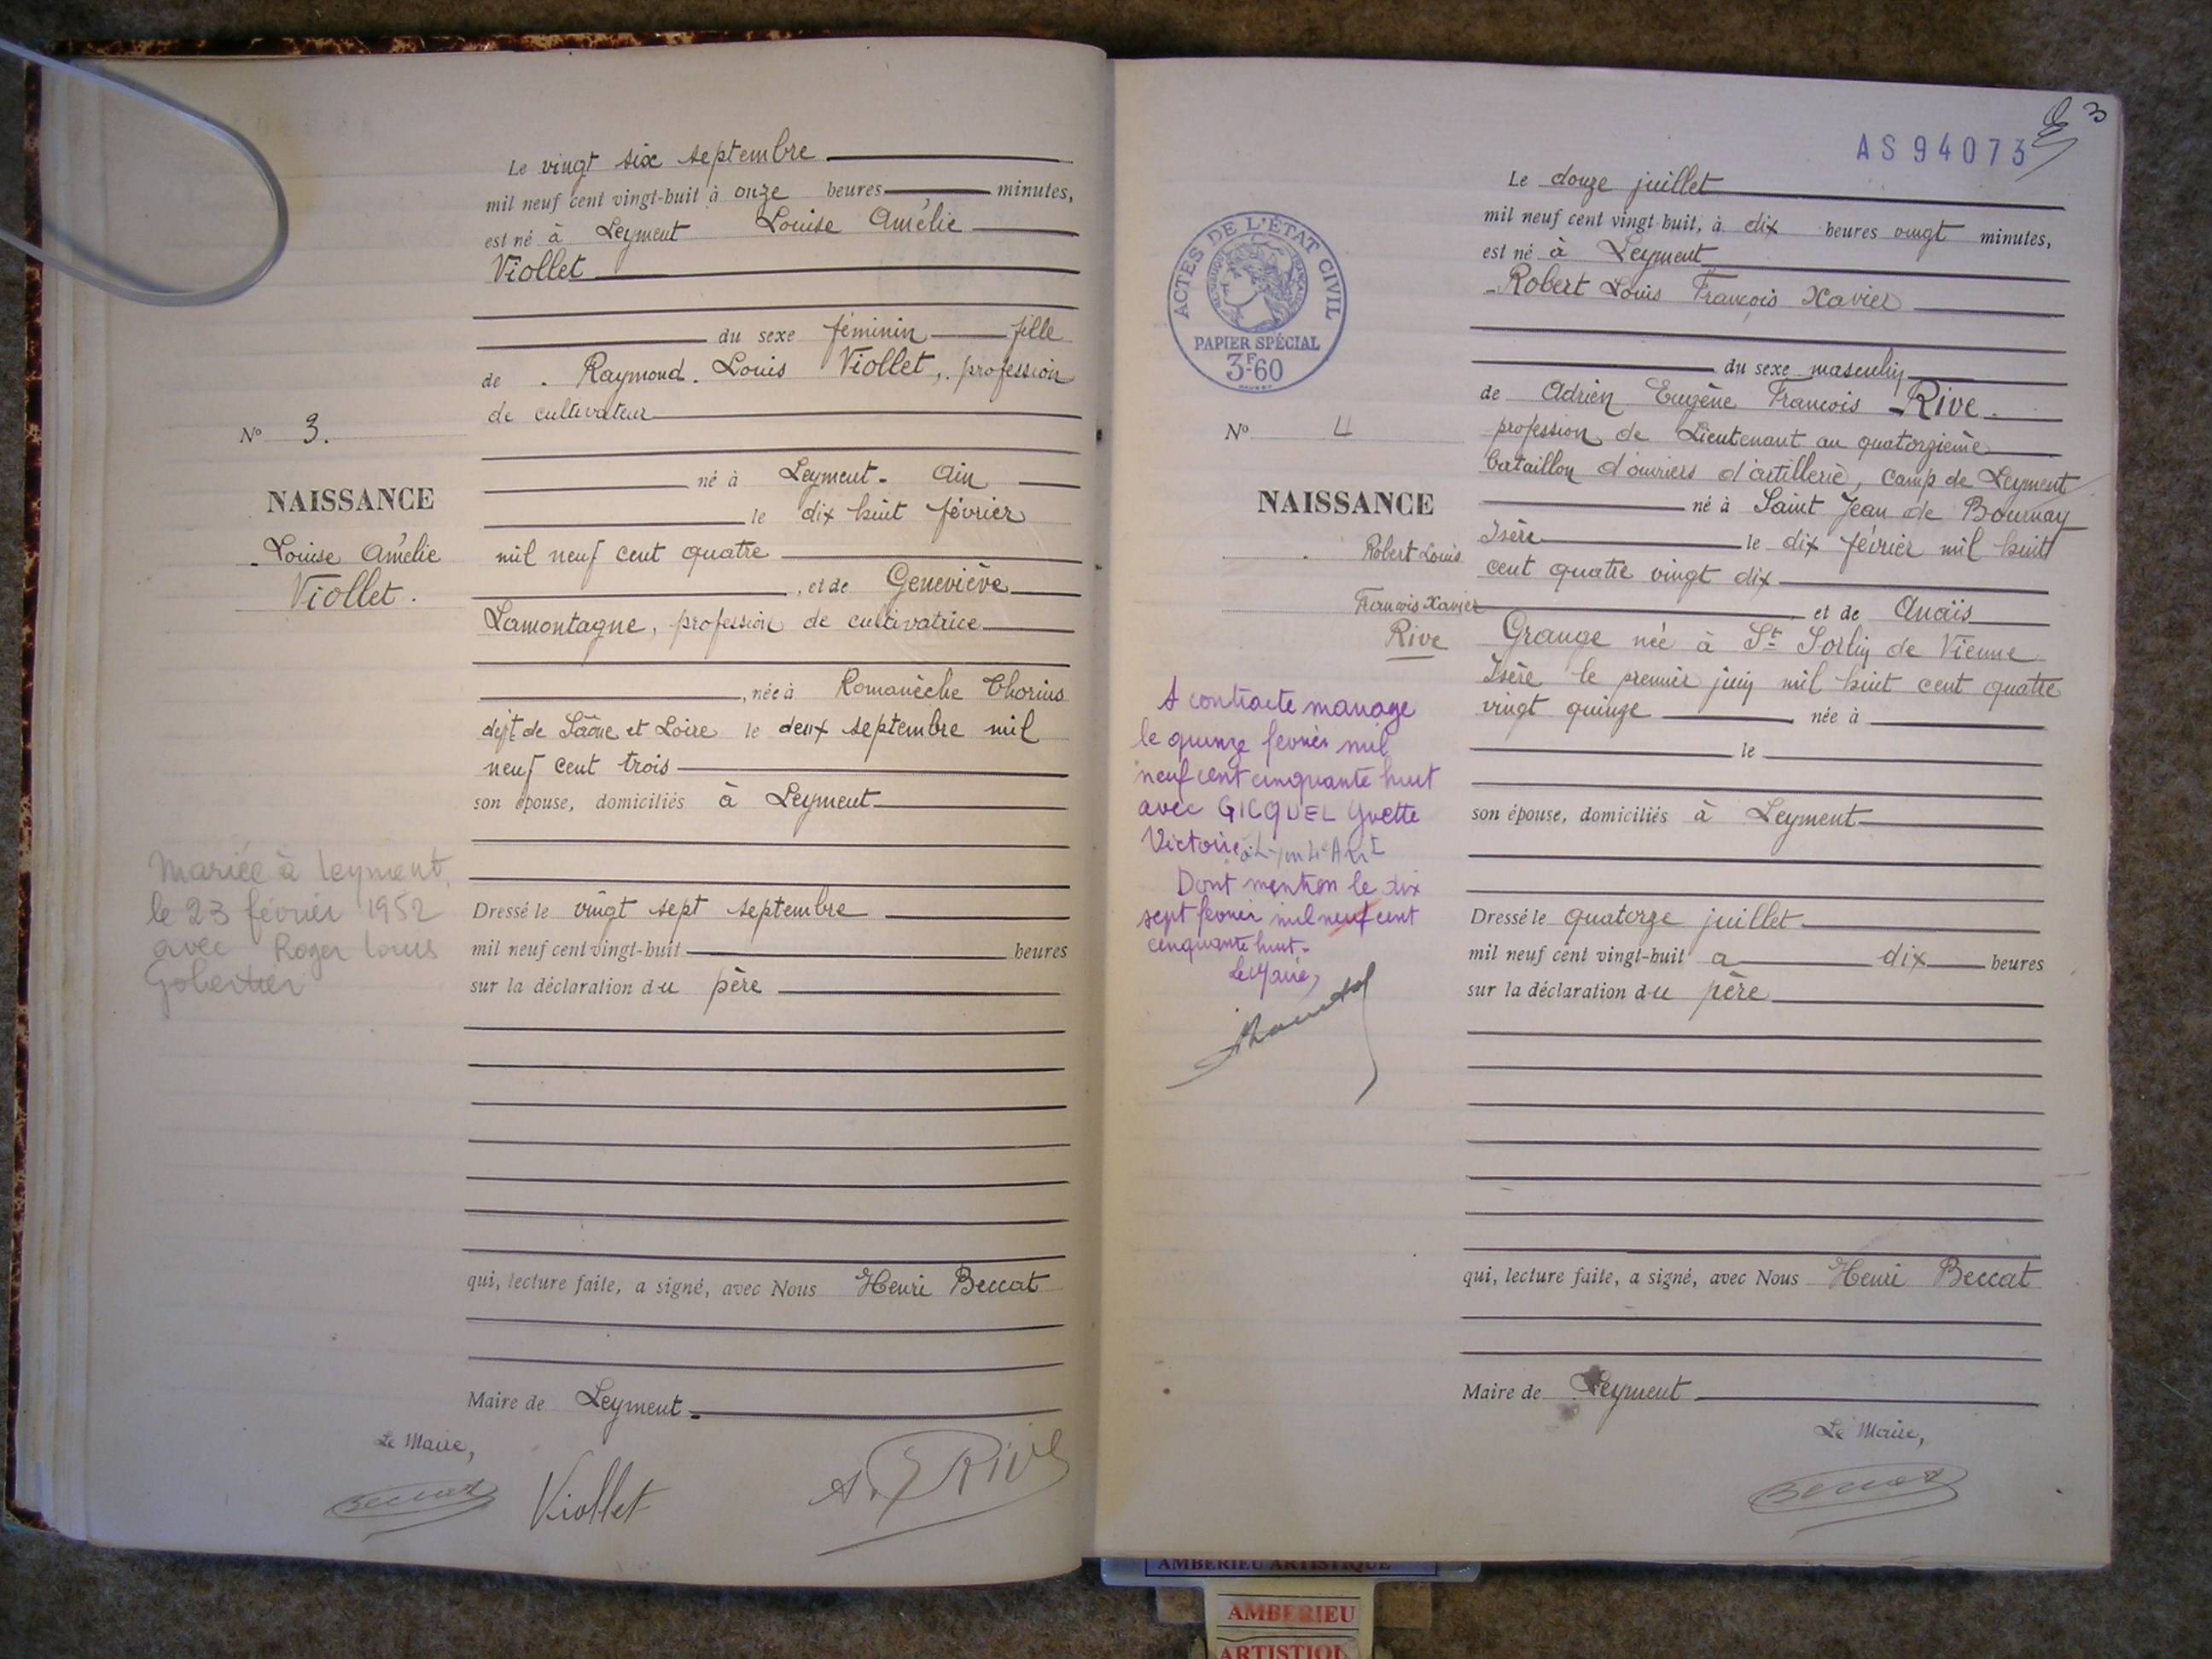 Le vingt six septembre
mil neuf cent vingt-huit à onze heures minutes,
est né à Leyment Louise Amélie
Viollet
du sexe féminin fille
de Raymond. Louis Viollet, profession
de cultivateur
Nº 3.
né à Leyment. Ain
NAISSANCE
le dix huit février
Louise Amélie
mil neuf cent quatre
Viollet.
, et de Geneviève
Lamontagne, profession de cultivatrice
, née à Romanèche Thorins
dépt de Saône et Loire le deux septembre mil
neuf cent trois
son épouse, domiciliés à Leyment
Mariée à Leyment,
le 23 février 1952
avec Roger Louis
Gobertier
Dressé le vingt sept septembre
mil neuf cent vingt-huit heures
sur la déclaration du père
qui, lecture faite, a signé, avec Nous Henri Beccat
Maire de Leyment.
Le Maire,
Beccat
Viollet
A. E Rive
3
AS 94073
Le douze juillet
mil neuf cent vingt-huit, à dix heures vingt minutes,
est né à Leyment
Robert Louis François Xavier
ACTES DE L'ÉTAT CIVIL
RÉPUBLIQUE FRANÇAISE
PAPIER SPÉCIAL
3F60
du sexe masculin
de Adrien Eugène François Rive
Nº 4
profession de Lieutenant au quatorzième
bataillon d'ouvriers d'artillerie, camp de Leyment
NAISSANCE
né à Saint Jean de Bournay
Robert Louis
Isère le dix février mil huit
cent quatre vingt dix
François Xavier
et de Anaïs
Rive
Grange née à St Sorlin de Vienne
Isère le premier juin mil huit cent quatre
vingt quinze née à
le
A contracte mariage
le quinze fevrier mil
neuf cent cinquante huit
avec GICQUEL Yvette
Victoire à Lyon 4e Art
Dont mention le dix
sept fevrier mil neuf cent
cinquante huit.
Le Maire,
son épouse, domiciliés à Leyment
Dressé le quatorze juillet
mil neuf cent vingt-huit a dix heures
sur la déclaration du père
qui, lecture faite, a signé, avec Nous Henri Beccat
Maire de Leyment
Le Maire,
Beccat
AMBERIEU ARTISTIQUE
AMBERIEU
ARTISTIQU